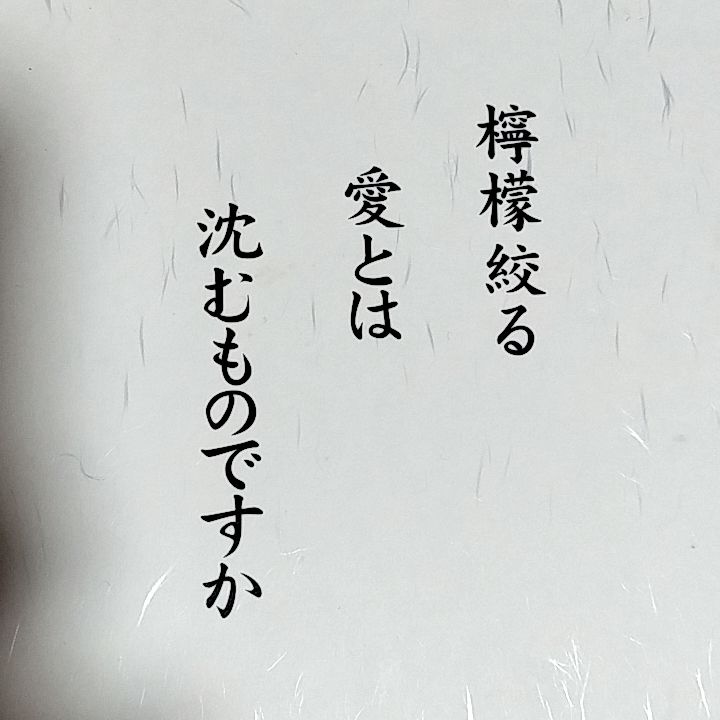 檸檬絞る
愛とは
沈むものですか